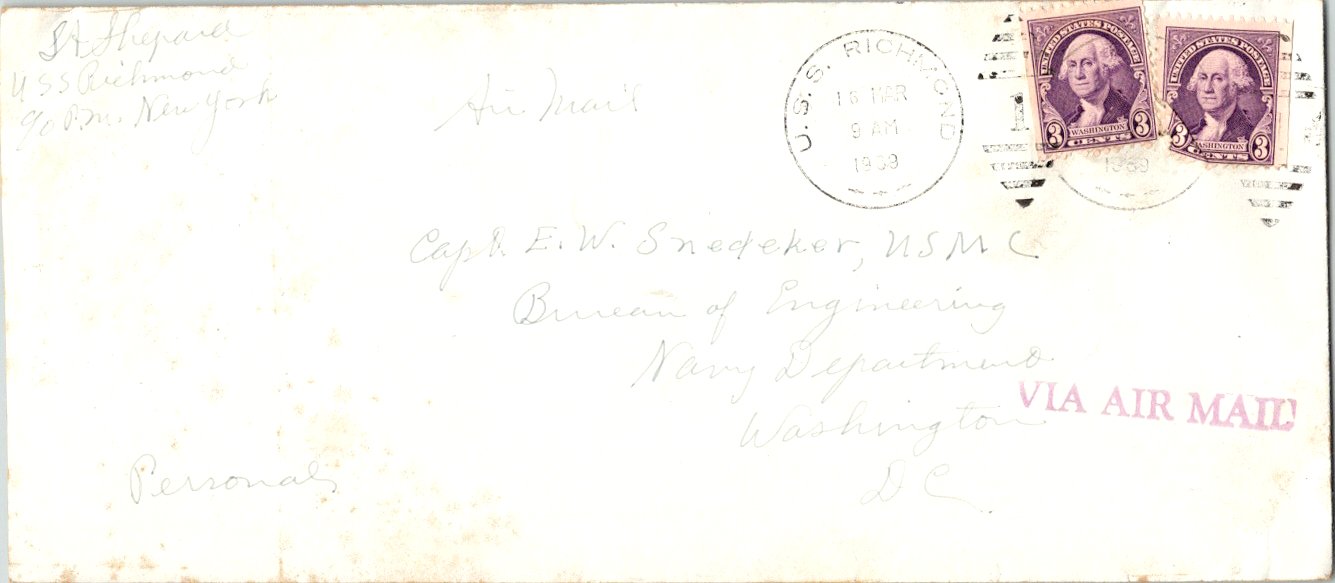 Lt Shepard
USS Richmond
c/o P.M. New York
Air Mail
U.S.S. RICHMOND
16 MAR
9 AM
1938
UNITED STATES POSTAGE
3 WASHINGTON 3
CENTS
UNITED STATES POSTAGE
3 WASHINGTON 3
CENTS
1
Capt. E. W. Snedeker, USMC
Bureau of Engineering
Navy Department
Washington
D C
VIA AIR MAIL
Personal